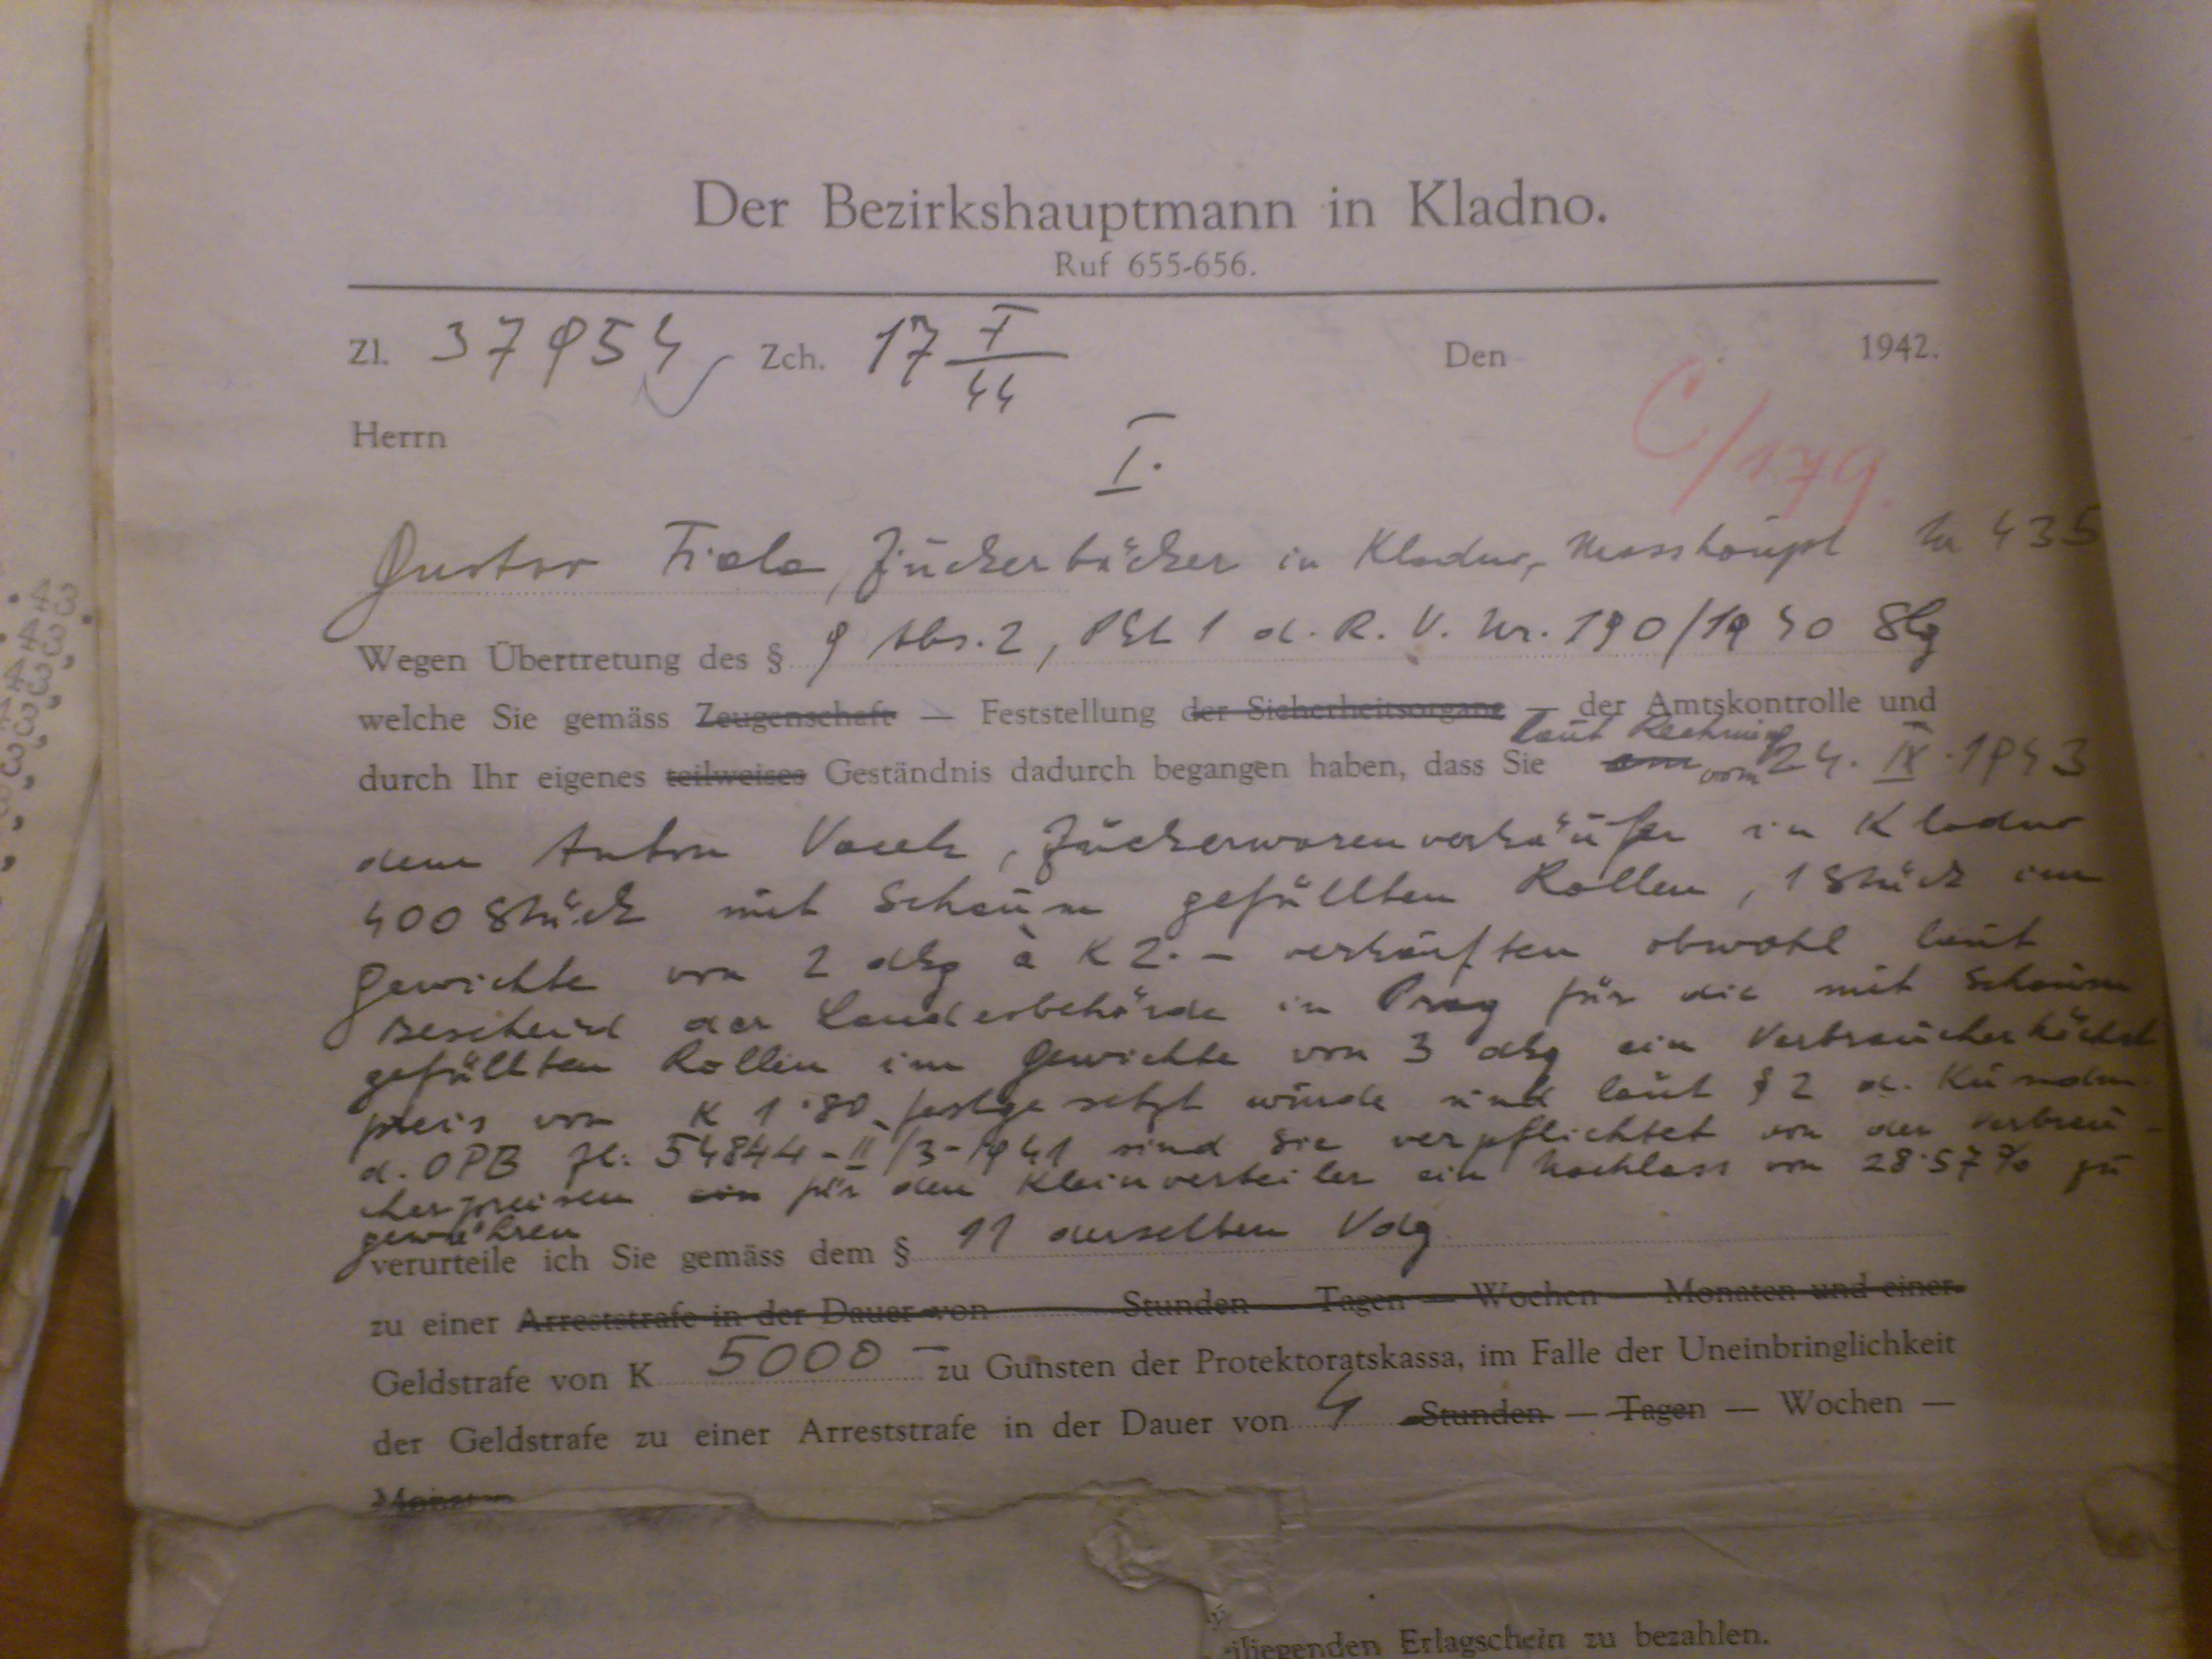 Der Bezirkshauptmann in Kladno.
Ruf 655-656.
Zl. 37954 Zch. 17 I/44 Den 1942.
Herrn
C/179.
I.
Gustav Fiala, Zuckerbäcker in Kladno, 435
Wegen Übertretung des § 9 Abs. 2, Pkt 1 d. R. V. Nr. 190/1940 Slg
welche Sie gemäss Zeugenschaft — Feststellung der Sicherheitsorgane — der Amtskontrolle und
laut Rechnung
durch Ihr eigenes teilweises Geständnis dadurch begangen haben, dass Sie am vom 24. IX. 1943
dem Anton, Zuckerwarenverkäufer in Kladno
400 Stück mit Schaum gefüllten Rollen, 1 Stück im
Gewichte von 2 dkg à K 2.- verkauften obwohl laut
Bescheid der Landesbehörde in Prag für die mit Schaum
gefüllten Rollen im Gewichte von 3 dkg ein Verbraucherhöchst
preis von K 1·80 festgesetzt wurde und laut § 2 d. Kundm.
d. OPB Zl: 54844-II/3-1941 sind Sie verpflichtet von den Verbrau-
cherpreisen ein für den Kleinverteiler ein Nachlass von 28·57% zu
gewähren
verurteile ich Sie gemäss dem § 11 derselben Vdg
zu einer Arreststrafe in der Dauer von Stunden — Tagen — Wochen — Monaten und einer
Geldstrafe von K 5000 — zu Gunsten der Protektoratskassa, im Falle der Uneinbringlichkeit
der Geldstrafe zu einer Arreststrafe in der Dauer von 4 Stunden — Tagen — Wochen —
iliegenden Erlagschein zu bezahlen.